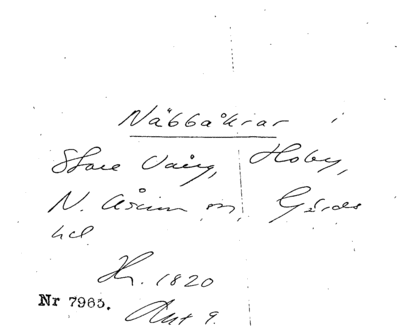 Näbbåkrar i
Store Vång, Hoby,
N. Åsum sn, Gärds
hd
Hr. 1820
Nr 7965.
Akt 9.